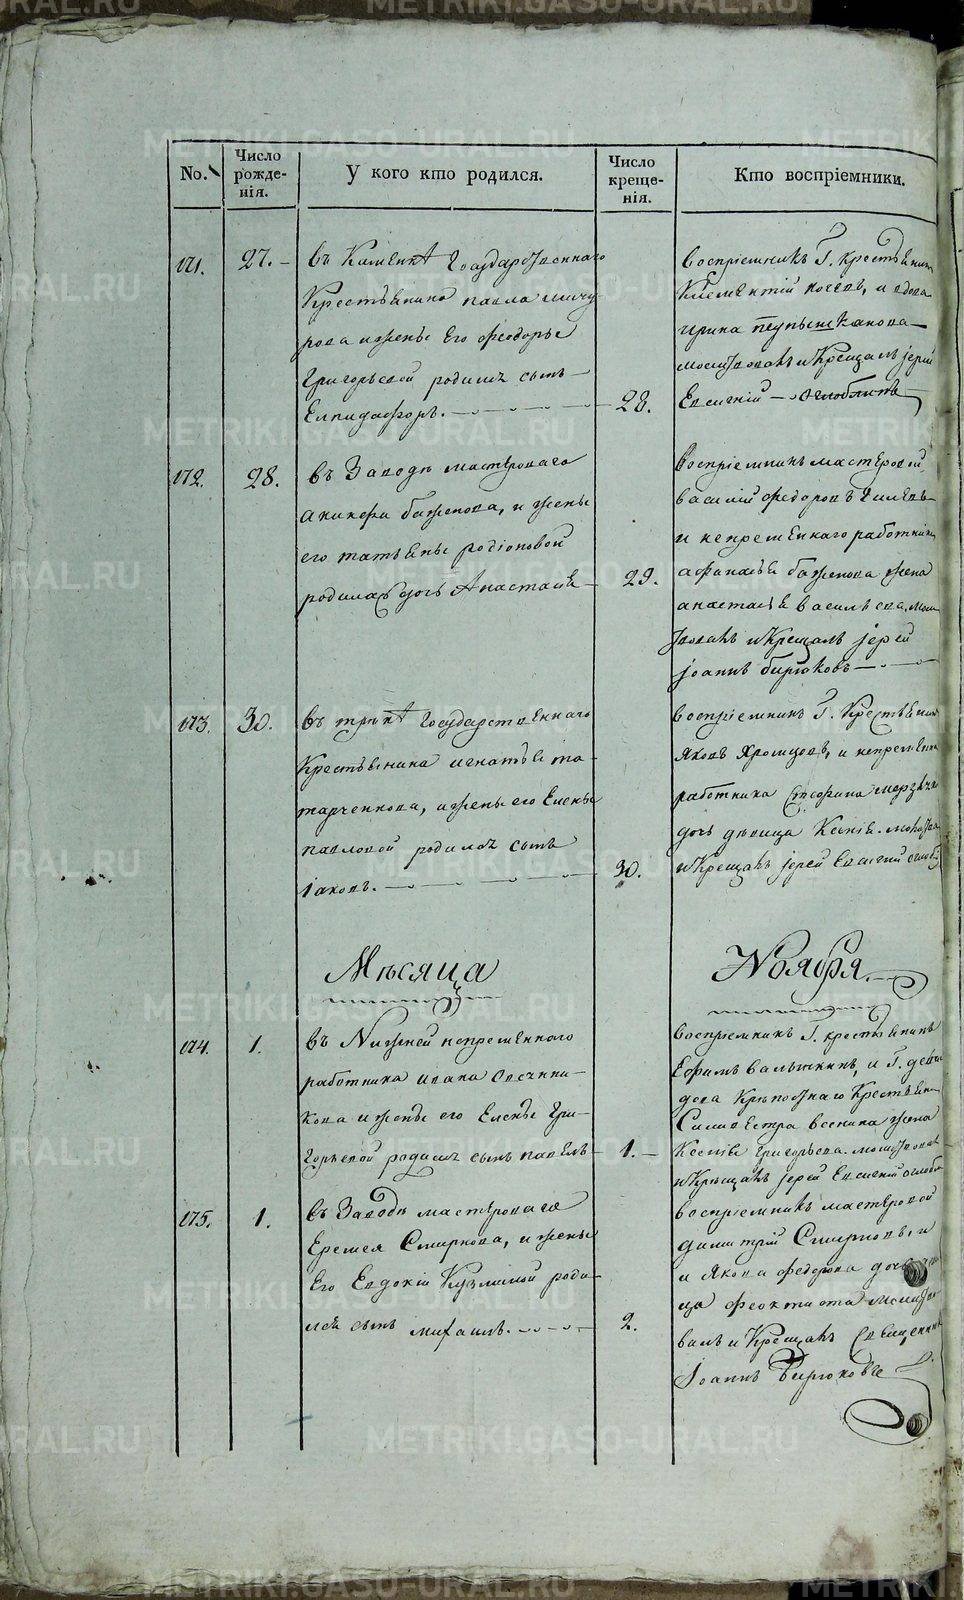 No.
Число рожде-нія.
У кого кто родился.
Число креще-нія.
Кто воспріемники.
171.
27.
въ Каменкѣ Государственнаго
Крестьянина павла
и жены Его Феодоры
Григорьевой родился сынъ
Елпидифоръ.
28.
воспріемникъ Г. крестьянинъ
Климентій и вдова
ирина
молитвовалъ и Крещалъ іерей
Евсигній Оглоблинъ
172.
28.
въ Заводѣ мастероваго
аникеи баженова, и жены
его татьяны родіоновой
родилась дочь Анастасія
29.
воспріемникъ мастеровой
василій федоровъ
и непременнаго работника
афанасья баженова жена
анастасія васильева, моли
твовалъ и Крещалъ іерей
іоаннъ бирюковъ
173.
30.
въ трикѣ Государственнаго
Крестьянина игнатья та-
тарченкова, и жены его Елены
павловой родился сынъ
іаковъ.
30.
воспріемникъ Г. Крестьянинъ
Яковъ Хромцовъ, и непременна
работника Стефана
дочь девица Ксенія. молитвов
и Крещалъ іерей Евсигній оглобл
Мѣсяца
Ноября.
174.
1.
въ Нижней непременного
работника ивана Овсянни-
кова и жены его Елены Гри-
горьевой родился сынъ павелъ
1.
воспріемникъ Г. крестьянинъ
Ефимъ валышкинъ, и Г. деми
дова Крѣпостнаго Крестьяни
Силивестра жена
Ксенія Григорьева. молитвовалъ
и Крещалъ іерей Евсигній оглобл
175.
1.
въ Заводѣ мастероваго
Еремея Смирнова, и жены
Его Евдокіи Кузминой роди-
лся сынъ михаилъ.
2.
воспріемникъ мастеровой
димитрій Смирновъ, и
и Якова федорова дочь
ца феоктиста молитво
валъ и Крещалъ Священникъ
Іоаннъ Бирюковъ
METRIKI.GASO-URAL.RU